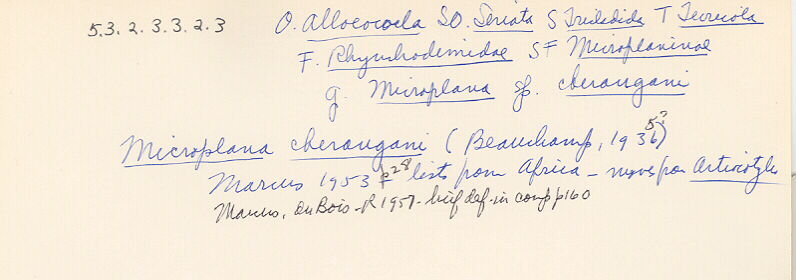 5.3.2.3.3.2.3
O. Alloeocoela SO. Seriata S Tricladida T Terricola
F. Rhynchodemidae SF Microplaninae
g. Microplana sp. cherangani
Microplana cherangani (Beauchamp, 1936) 5?
Marcus 1953 p28 lists from Africa - moves from Artiocotylus
Marcus, du Bois-R 1957 - brief def. in comp p160